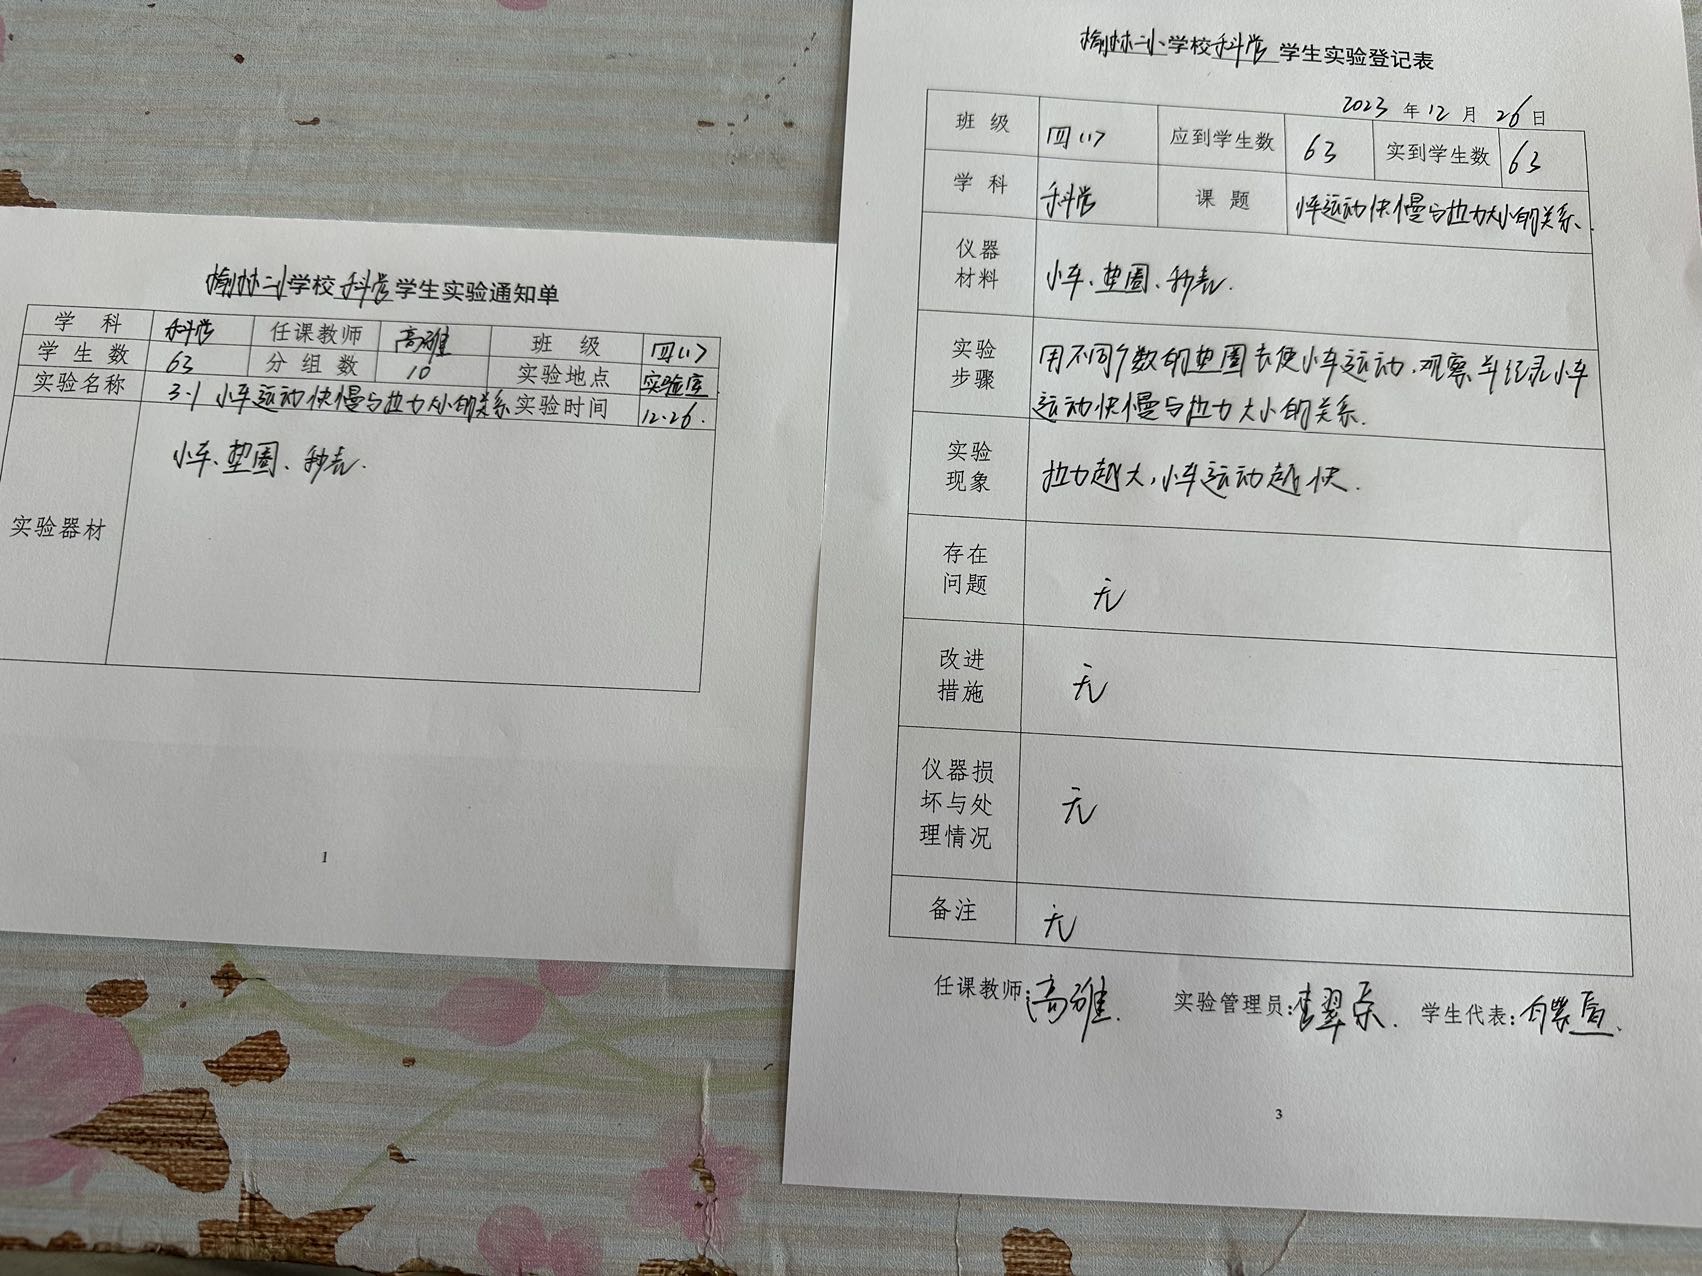 榆林二小学校科学学生实验通知单
学科 科学 任课教师 高雅 班级 四(1)
学生数 63 分组数 10 实验地点 实验室
实验名称 3.1 小车运动快慢与拉力大小的关系 实验时间 12.26.
实验器材 小车、垫圈、秒表.
1
榆林二小学校科学学生实验登记表
2023年12月26日
班级 四(1) 应到学生数 63 实到学生数 63
学科 科学 课题 小车运动快慢与拉力大小的关系.
仪器
材料
小车、垫圈、秒表.
实验
步骤
用不同个数的垫圈去使小车运动,观察并记录小车
运动快慢与拉力大小的关系.
实验
现象
拉力越大,小车运动越快.
存在
问题
无
改进
措施
无
仪器损
坏与处
理情况
无
备注 无
任课教师:高雅. 实验管理员: 学生代表:
3